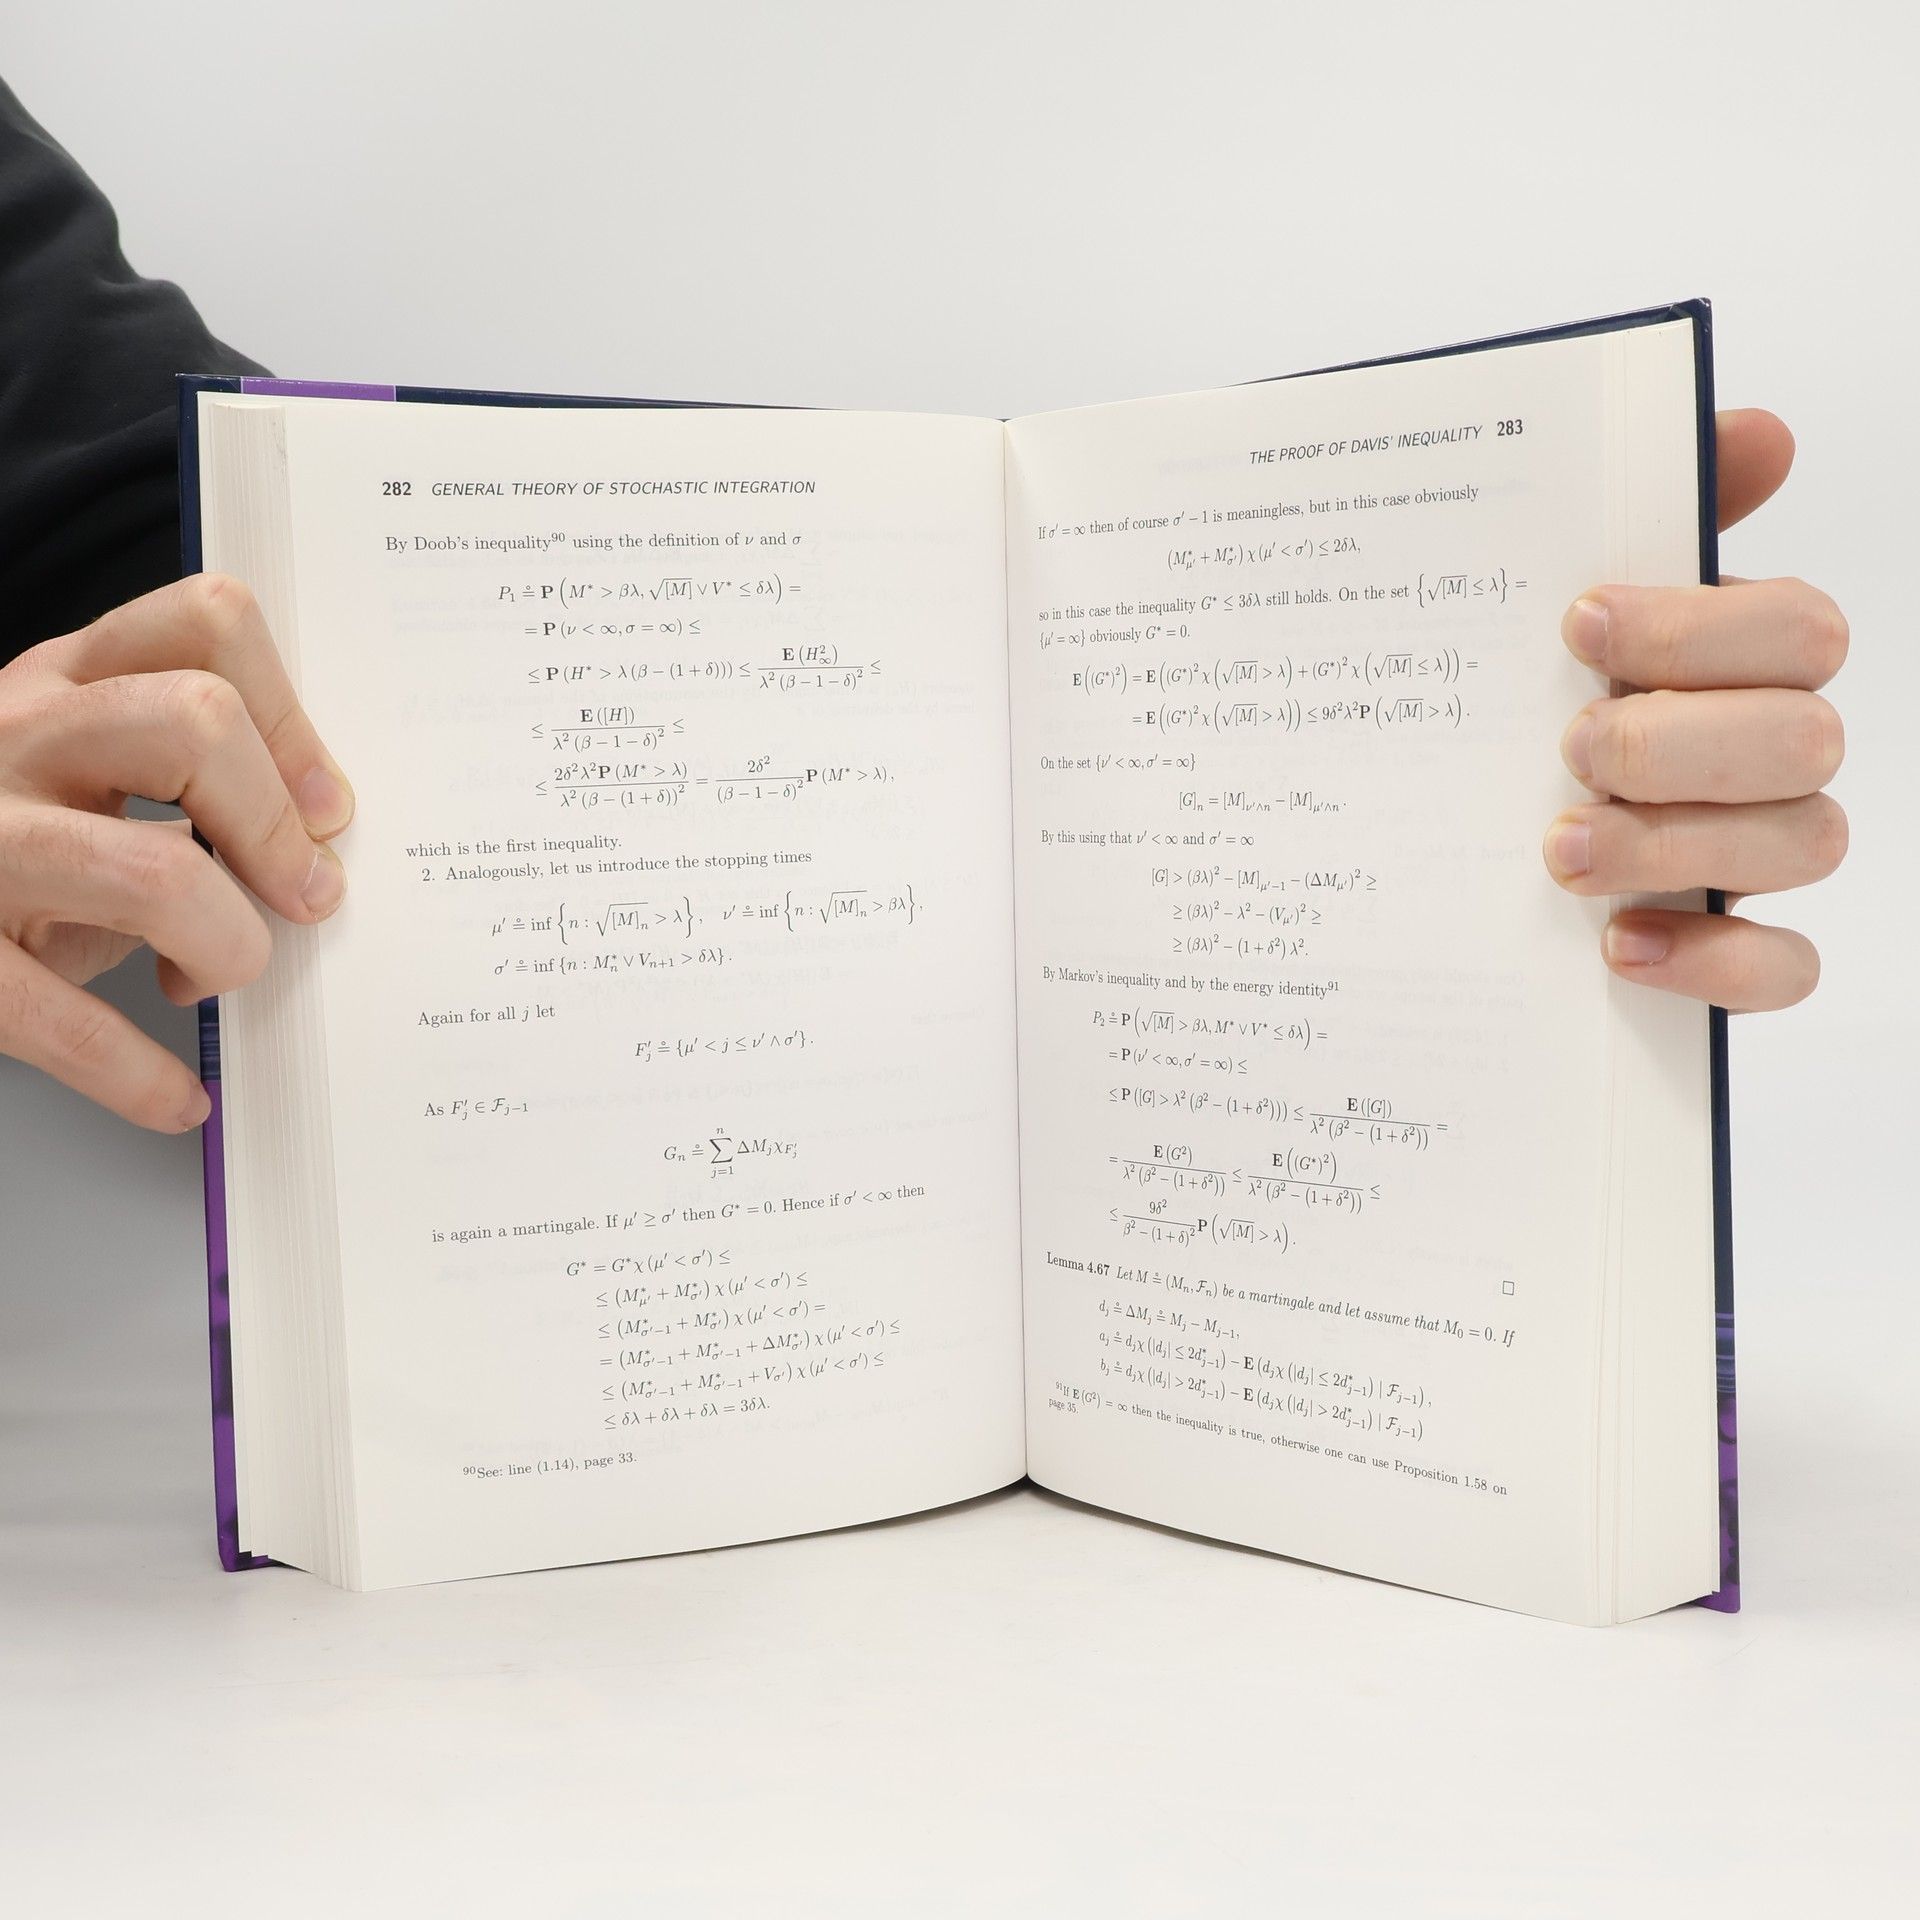 282 GENERAL THEORY OF STOCHASTIC INTEGRATION
By Doob's inequality⁹⁰ using the definition of ν and σ
P₁ ≗ P (M* > βλ, √[M] ∨ V* ≤ δλ) =
= P (ν < ∞, σ = ∞) ≤
≤ P (H* > λ (β − (1 + δ))) ≤ E (H²_∞) / λ² (β − 1 − δ)² ≤
≤ E ([H]) / λ² (β − 1 − δ)² ≤
≤ 2δ²λ²P (M* > λ) / λ² (β − (1 + δ))² = 2δ² / (β − 1 − δ)² P (M* > λ),
which is the first inequality.
2. Analogously, let us introduce the stopping times
μ′ ≗ inf {n : √[M]_n > λ}, ν′ ≗ inf {n : √[M]_n > βλ},
σ′ ≗ inf {n : M*_n ∨ V_{n+1} > δλ}.
Again for all j let
F′_j ≗ {μ′ < j ≤ ν′ ∧ σ′}.
As F′_j ∈ 𝓕_{j−1}
G_n ≗ ∑_{j=1}^{n} ΔM_jχ_{F′_j}
is again a martingale. If μ′ ≥ σ′ then G* = 0. Hence if σ′ < ∞ then
G* = G*χ (μ′ < σ′) ≤
≤ (M*_{μ′} + M*_{σ′}) χ (μ′ < σ′) ≤
≤ (M*_{σ′−1} + M*_{σ′}) χ (μ′ < σ′) =
= (M*_{σ′−1} + M*_{σ′−1} + ΔM*_{σ′}) χ (μ′ < σ′) ≤
≤ (M*_{σ′−1} + M*_{σ′−1} + V_{σ′}) χ (μ′ < σ′) ≤
≤ δλ + δλ + δλ = 3δλ.
⁹⁰See: line (1.14), page 33.
THE PROOF OF DAVIS' INEQUALITY 283
If σ′ = ∞ then of course σ′ − 1 is meaningless, but in this case obviously
(M*_{μ′} + M*_{σ′}) χ (μ′ < σ′) ≤ 2δλ,
so in this case the inequality G* ≤ 3δλ still holds. On the set {√[M] ≤ λ} =
{μ′ = ∞} obviously G* = 0.
E ((G*)²) = E ((G*)² χ (√[M] > λ) + (G*)² χ (√[M] ≤ λ)) =
= E ((G*)² χ (√[M] > λ)) ≤ 9δ²λ²P (√[M] > λ).
On the set {ν′ < ∞, σ′ = ∞}
[G]_n = [M]_{ν′∧n} − [M]_{μ′∧n}.
By this using that ν′ < ∞ and σ′ = ∞
[G] > (βλ)² − [M]_{μ′−1} − (ΔM_{μ′})² ≥
≥ (βλ)² − λ² − (V_{μ′})² ≥
≥ (βλ)² − (1 + δ²) λ².
By Markov's inequality and by the energy identity⁹¹
P₂ ≗ P (√[M] > βλ, M* ∨ V* ≤ δλ) =
= P (ν′ < ∞, σ′ = ∞) ≤
≤ P ([G] > λ² (β² − (1 + δ²))) ≤ E ([G]) / λ² (β² − (1 + δ²)) =
= E (G²) / λ² (β² − (1 + δ²)) ≤ E ((G*)²) / λ² (β² − (1 + δ²)) ≤
≤ 9δ² / β² − (1 + δ)² P (√[M] > λ).
□
Lemma 4.67 Let M ≗ (M_n, 𝓕_n) be a martingale and let assume that M₀ = 0. If
d_j ≗ ΔM_j ≗ M_j − M_{j−1},
a_j ≗ d_jχ (|d_j| ≤ 2d*_{j−1}) − E (d_jχ (|d_j| ≤ 2d*_{j−1}) | 𝓕_{j−1}),
b_j ≗ d_jχ (|d_j| > 2d*_{j−1}) − E (d_jχ (|d_j| > 2d*_{j−1}) | 𝓕_{j−1})
⁹¹If E (G²) = ∞ then the inequality is true, otherwise one can use Proposition 1.58 on
page 35.